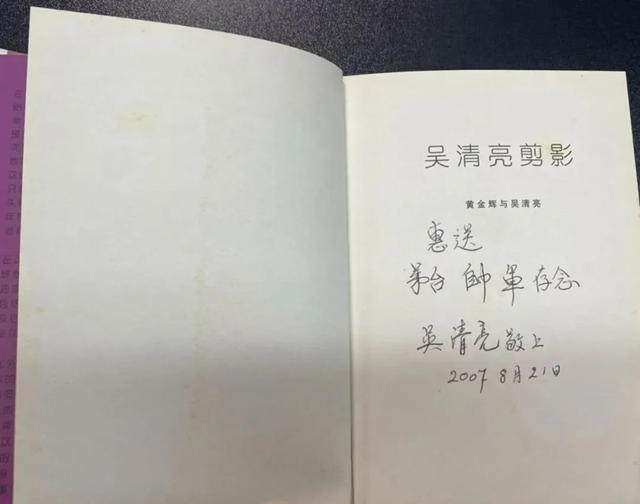 吴清亮剪影
黄金辉与吴清亮
惠送
茅台 帥軍 存念
吴清亮敬上
2007 8月21日